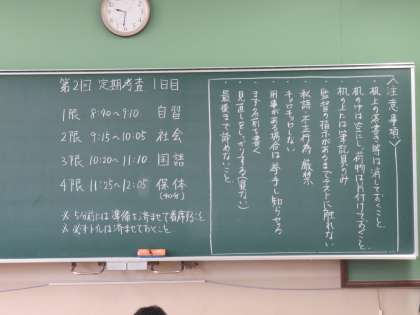 第2回 定期考査 1日目
1限 8:40～9:10 自習
2限 9:15～10:05 社会
3限 10:20～11:10 国語
4限 11:25～12:05 保体
(40分)
※ 5分前には準備を済ませて着席すること
※ 必ずトイレは済ませておくこと
＜注意事項＞
・机上の落書き等は消しておくこと
・机の中は空にし、荷物は片付けておくこと
・机の上は筆記具のみ
・監督の指示があるまでテストに触れない
・私語、不正行為 厳禁
・キョロキョロしない
・用事がある場合は挙手し知らせる
・まず名前を書く
・見直しをしっかりする(寝ない)
・最後まで諦めないこと